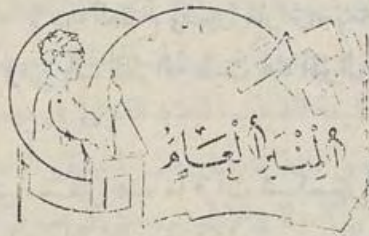 أَلْمِنْبَرُ أَلْعَامُ